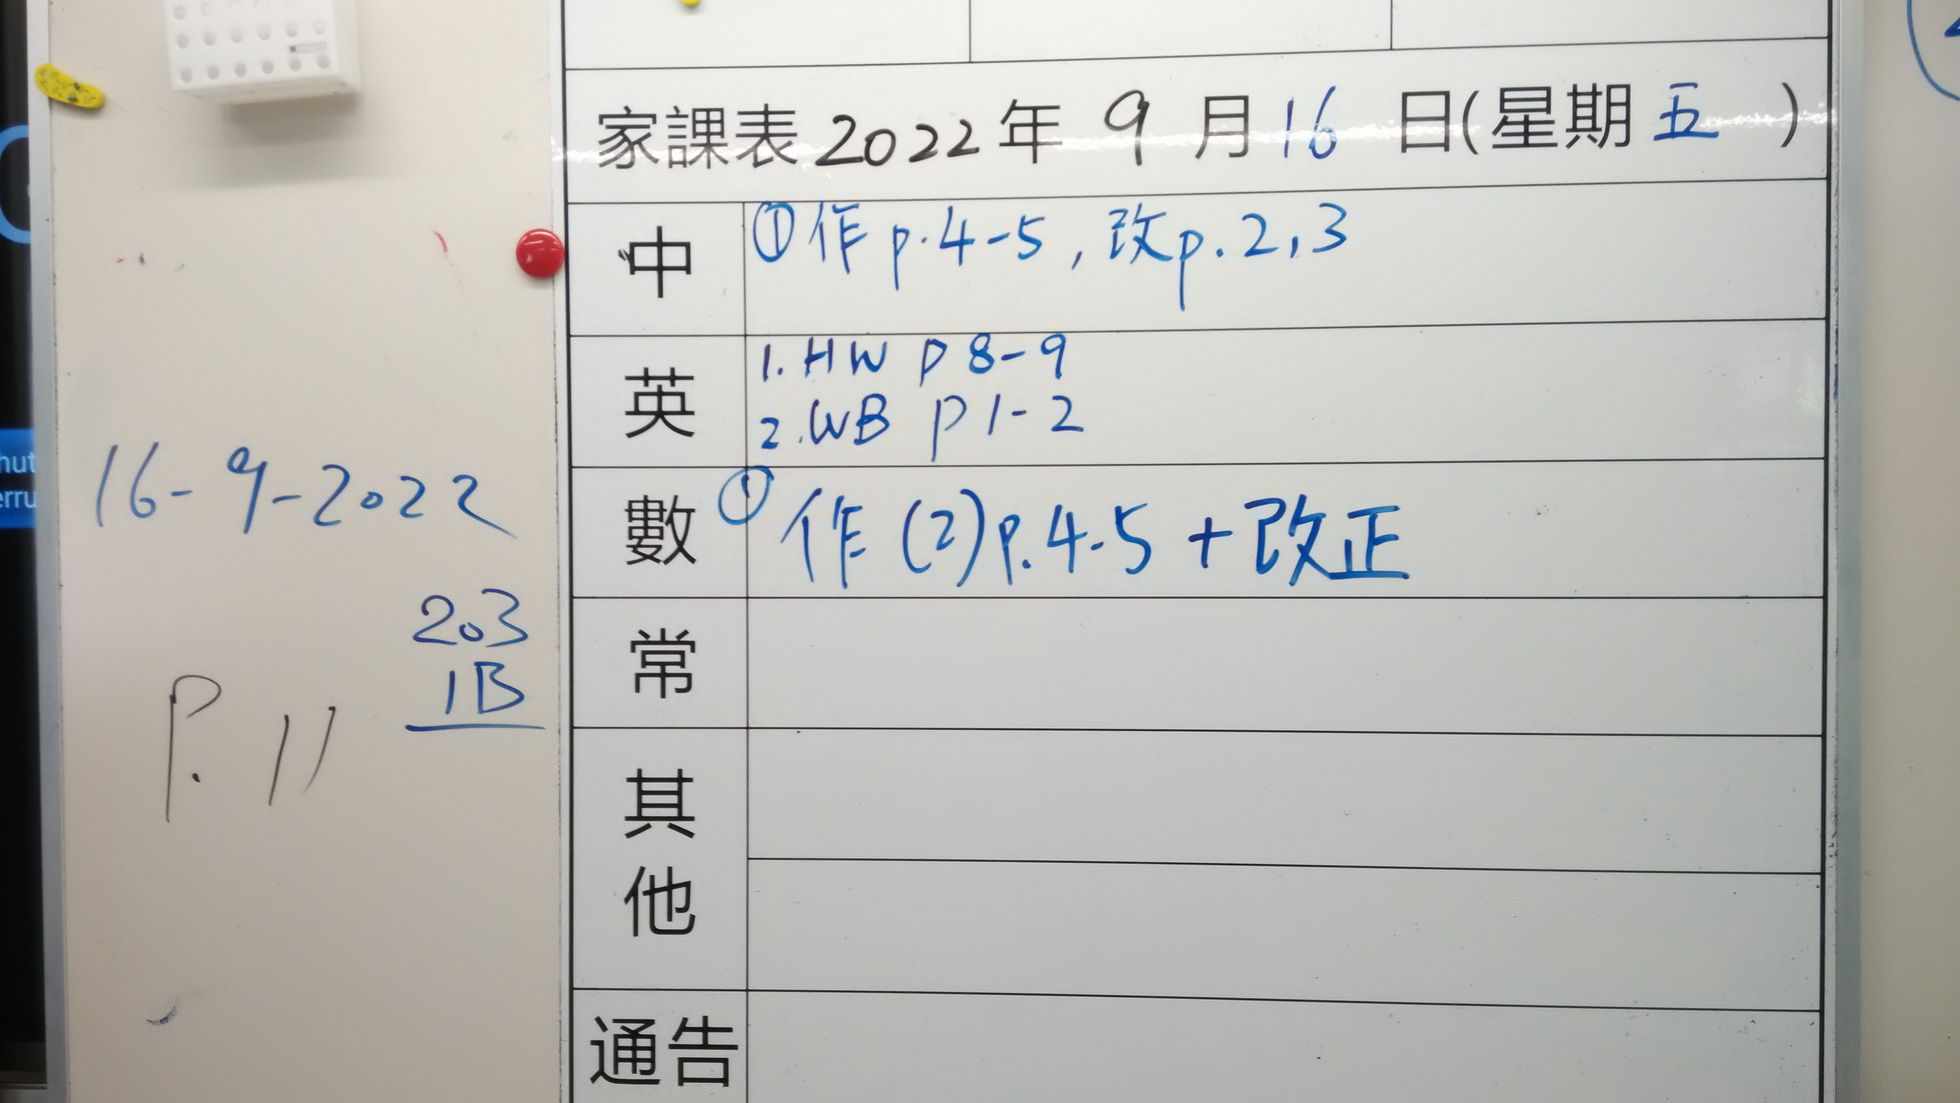 家課表 2022年 9 月 16 日(星期 五 )
中 ①作 p.4-5, 改p.2,3
英 1. HW p 8-9
2. WB p 1-2
數 ① 作 (2) p.4-5 + 改正
常
其他
通告
16-9-2022
203
1B
P. 11